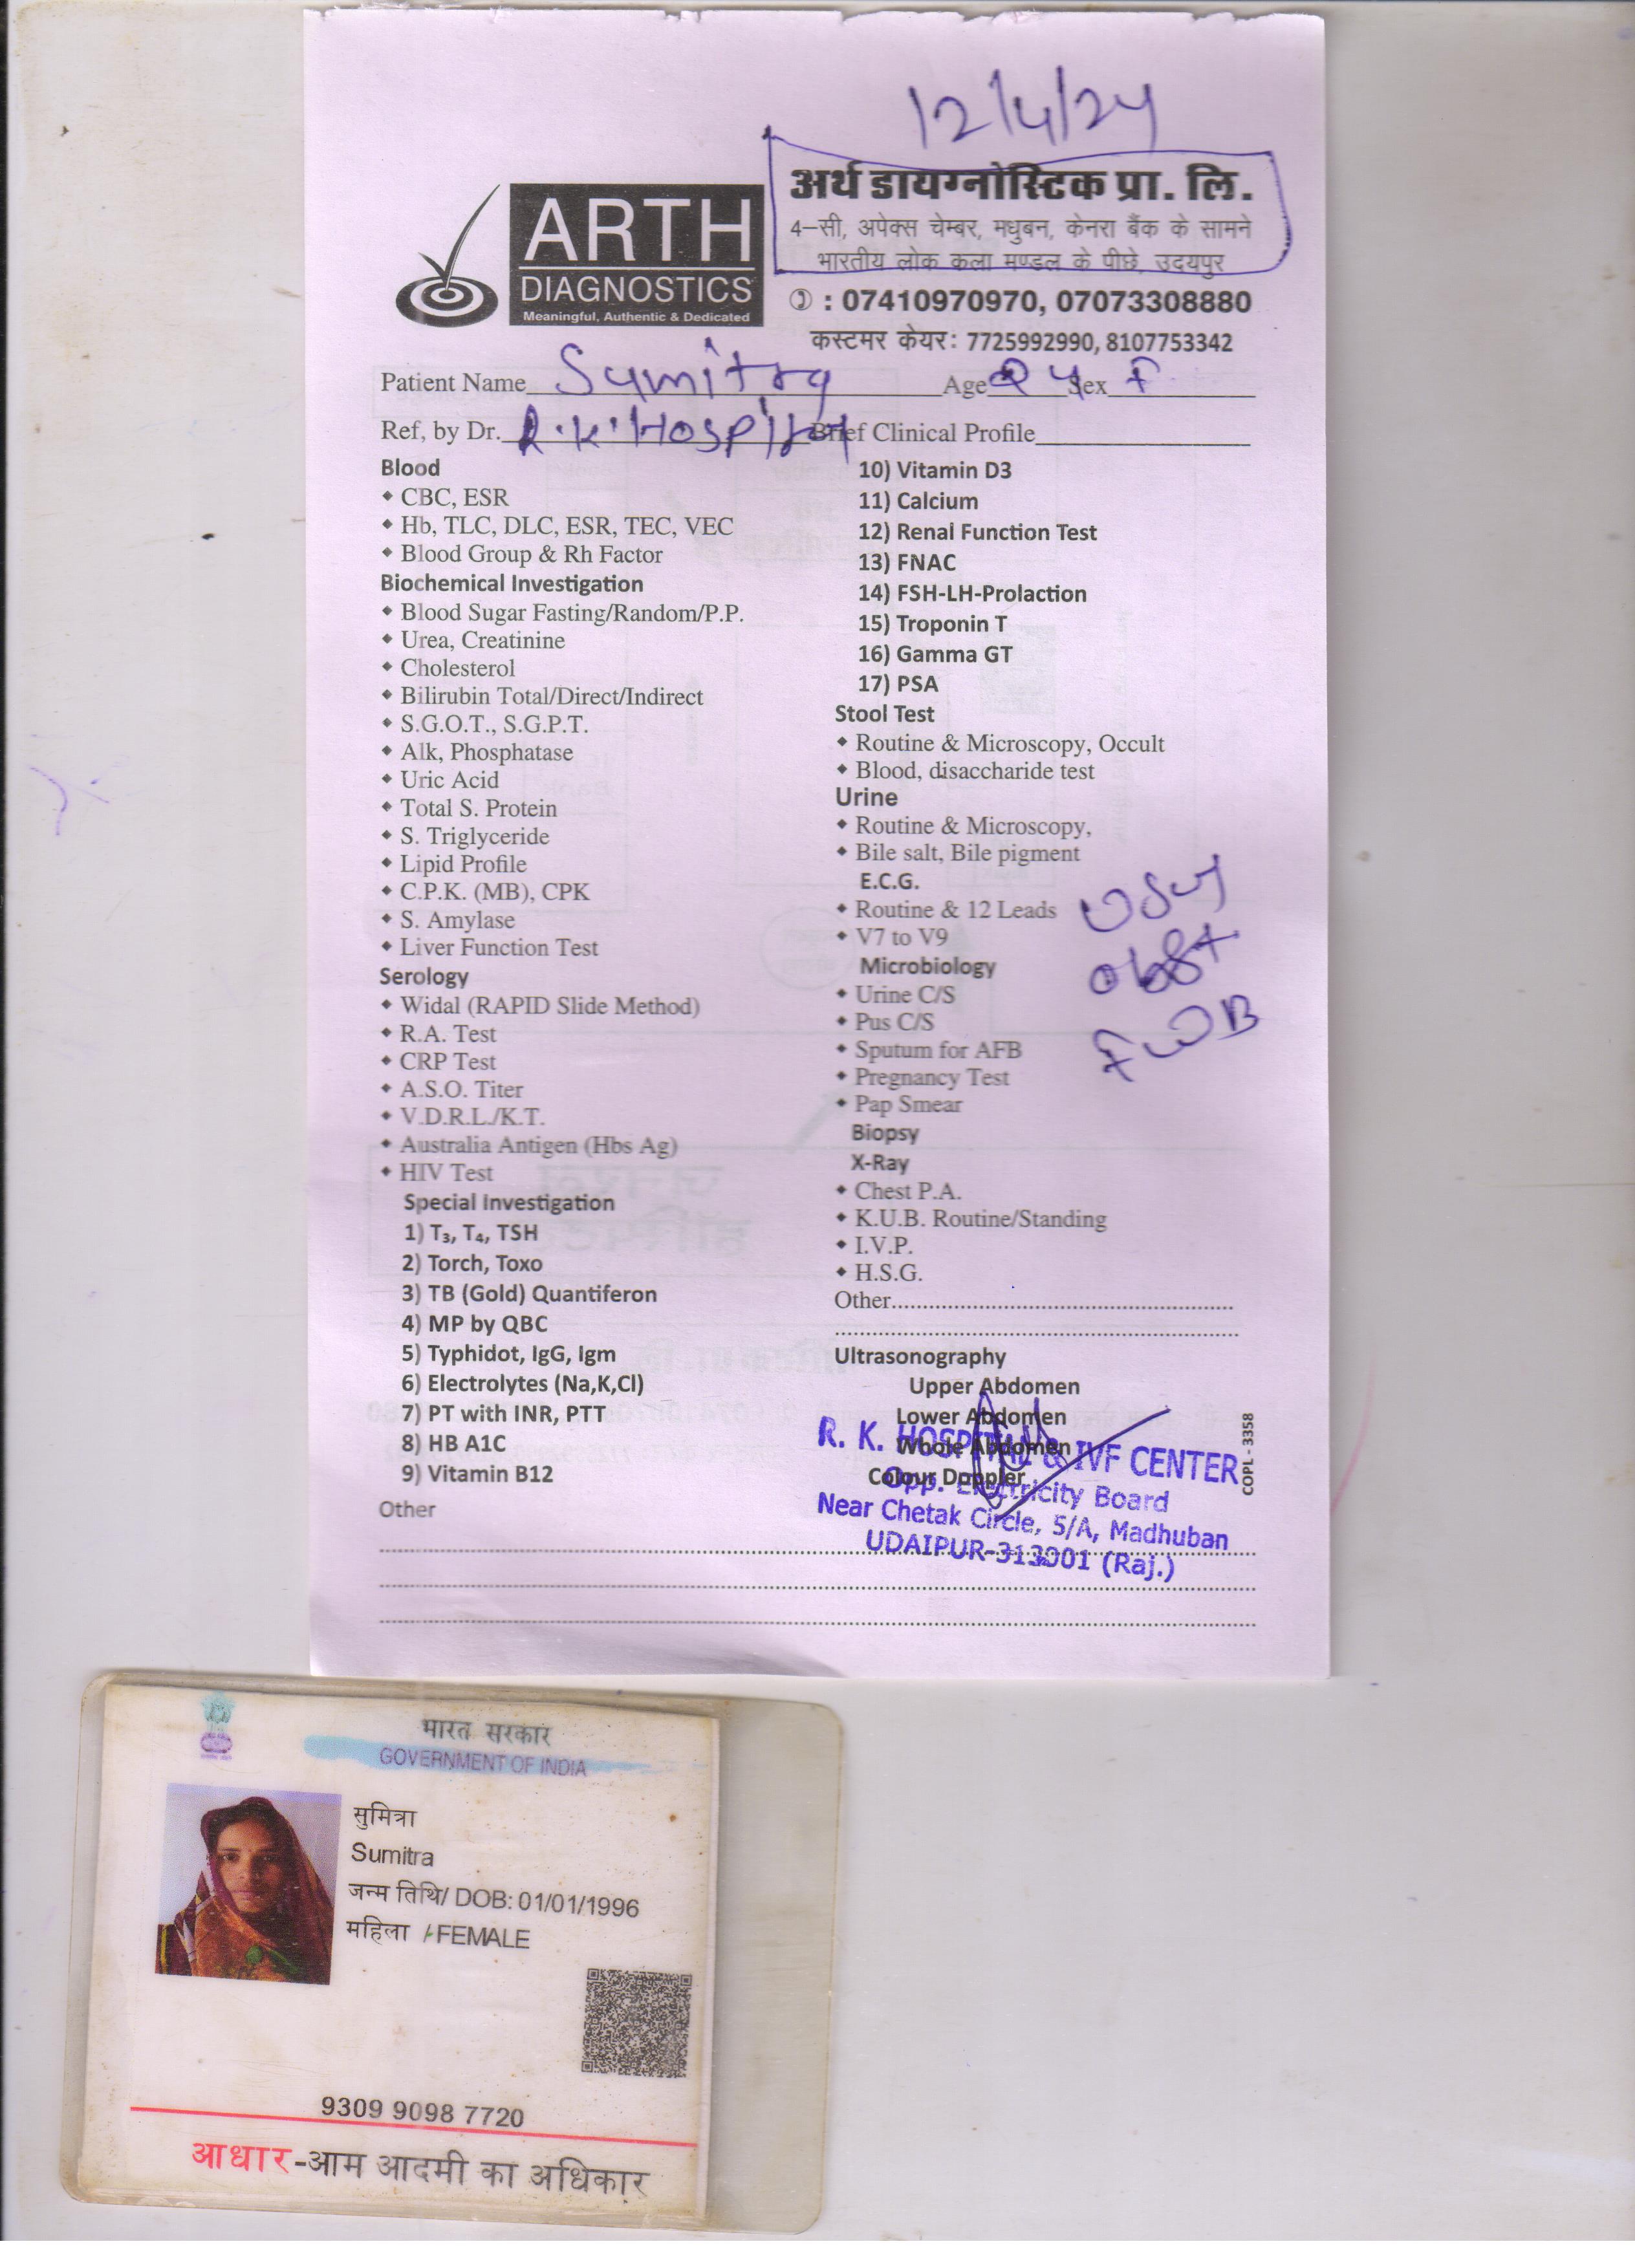 12/4/24
ARTH
DIAGNOSTICS
Meaningful, Authentic & Dedicated
अर्थ डायग्नोस्टिक प्रा. लि.
4–सी, अपेक्स चेम्बर, मधुबन, केनरा बैंक के सामने
भारतीय लोक कला मण्डल के पीछे, उदयपुर
: 07410970970, 07073308880
कस्टमर केयर: 7725992990, 8107753342
Patient Name Sumitra Age 24 Sex F
Ref, by Dr. R.K. Hospital Brief Clinical Profile
Blood
• CBC, ESR
• Hb, TLC, DLC, ESR, TEC, VEC
• Blood Group & Rh Factor
Biochemical Investigation
• Blood Sugar Fasting/Random/P.P.
• Urea, Creatinine
• Cholesterol
• Bilirubin Total/Direct/Indirect
• S.G.O.T., S.G.P.T.
• Alk, Phosphatase
• Uric Acid
• Total S. Protein
• S. Triglyceride
• Lipid Profile
• C.P.K. (MB), CPK
• S. Amylase
• Liver Function Test
Serology
• Widal (RAPID Slide Method)
• R.A. Test
• CRP Test
• A.S.O. Titer
• V.D.R.L./K.T.
• Australia Antigen (Hbs Ag)
• HIV Test
Special Investigation
1) T₃, T₄, TSH
2) Torch, Toxo
3) TB (Gold) Quantiferon
4) MP by QBC
5) Typhidot, IgG, Igm
6) Electrolytes (Na,K,Cl)
7) PT with INR, PTT
8) HB A1C
9) Vitamin B12
Other
10) Vitamin D3
11) Calcium
12) Renal Function Test
13) FNAC
14) FSH-LH-Prolaction
15) Troponin T
16) Gamma GT
17) PSA
Stool Test
• Routine & Microscopy, Occult
• Blood, disaccharide test
Urine
• Routine & Microscopy,
• Bile salt, Bile pigment
E.C.G.
• Routine & 12 Leads
• V7 to V9
Microbiology
• Urine C/S
• Pus C/S
• Sputum for AFB
• Pregnancy Test
• Pap Smear
Biopsy
X-Ray
• Chest P.A.
• K.U.B. Routine/Standing
• I.V.P.
• H.S.G.
Other
obst
FWB
Ultrasonography
Upper Abdomen
Lower Abdomen
Whole Abdomen
Colour Doppler
COPL - 3358
R. K. HOSPITAL & IVF CENTER
Opp. Electricity Board
Near Chetak Circle, 5/A, Madhuban
UDAIPUR-313001 (Raj.)
भारत सरकार
GOVERNMENT OF INDIA
सुमित्रा
Sumitra
जन्म तिथि/ DOB: 01/01/1996
महिला / FEMALE
9309 9098 7720
आधार-आम आदमी का अधिकार